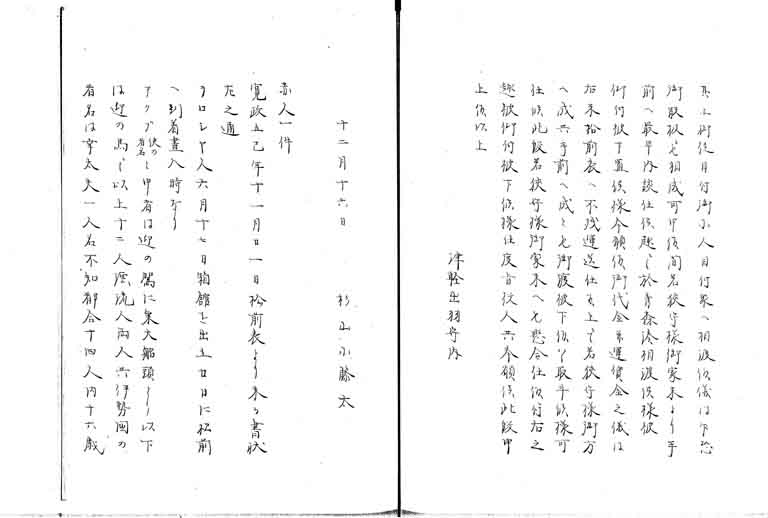 其上御役目付御小人目付衆へ相渡候儀は乍恐
御取扱も相成可申候間若狭守様御家来より手
前へ最早内談仕候趣も於青森湊相渡候様被
仰付被下置候様今願候御代金并運賃金之儀は
右米松前表へ不残運送仕其上も若狭守様御方
へ成共手前へ成とも御渡被下候取平候様可
仕候此段若狭守様御家来へも懸合仕候付右之
趣被仰付被下候様仕度旨役人共奉願候此段申
上候以上
津軽出羽守内
十二月十六日 杉山小藤太
赤人一件
寛政五己年十一月廿一日松前表より来る書状
左之通
ヲロシヤ人六月十七日箱館を出立廿日に松前
へ到着昼八時なり
アタブ使の名と申者は迎の駕に乗大船頭より以下
は迎の馬も以上十二人漂流人両人共伊勢国の
者名は幸太夫一人名不知都合十四人内十六歳